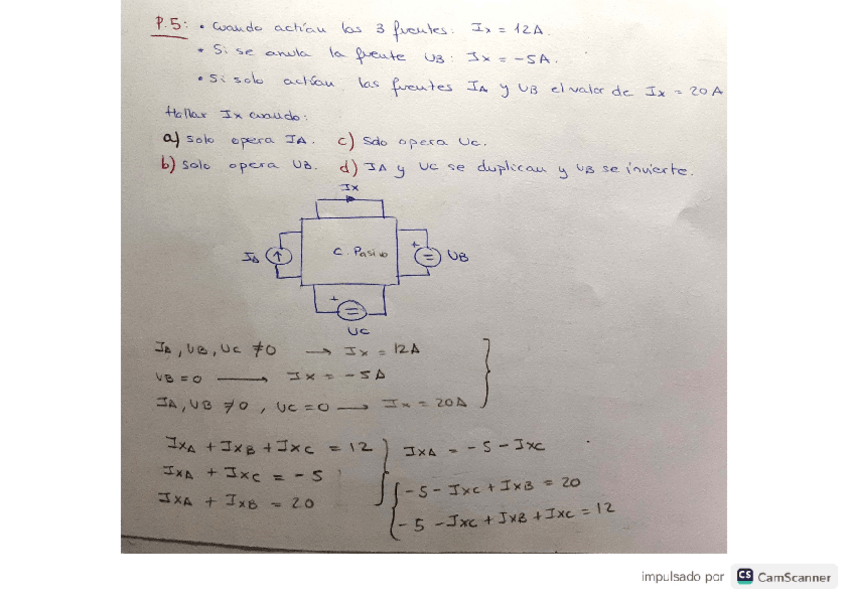 P.5: • Cuando actúan las 3 fuentes: Ix = 12A.
• Si se anula la fuente UB: Ix = -5A.
• Si solo actúan las fuentes IA y UB el valor de Ix = 20A
Hallar Ix cuando:
a) Solo opera IA. c) Solo opera Uc.
b) Solo opera UB. d) IA y UC se duplican y UB se invierte.
Ix
IA C. Pasivo + = UB
+ =
UC
IA, UB, UC ≠0 → Ix = 12A
UB = 0 → Ix = -5A
IA, UB ≠0, UC = 0 → Ix = 20A
IXA + IXB + IXC = 12 IXA = -5 - IXC
IXA + IXC = -5
IXA + IXB = 20 -5 - IXC + IXB = 20
-5 - IXC + IXB + IXC = 12
impulsado por CS CamScanner